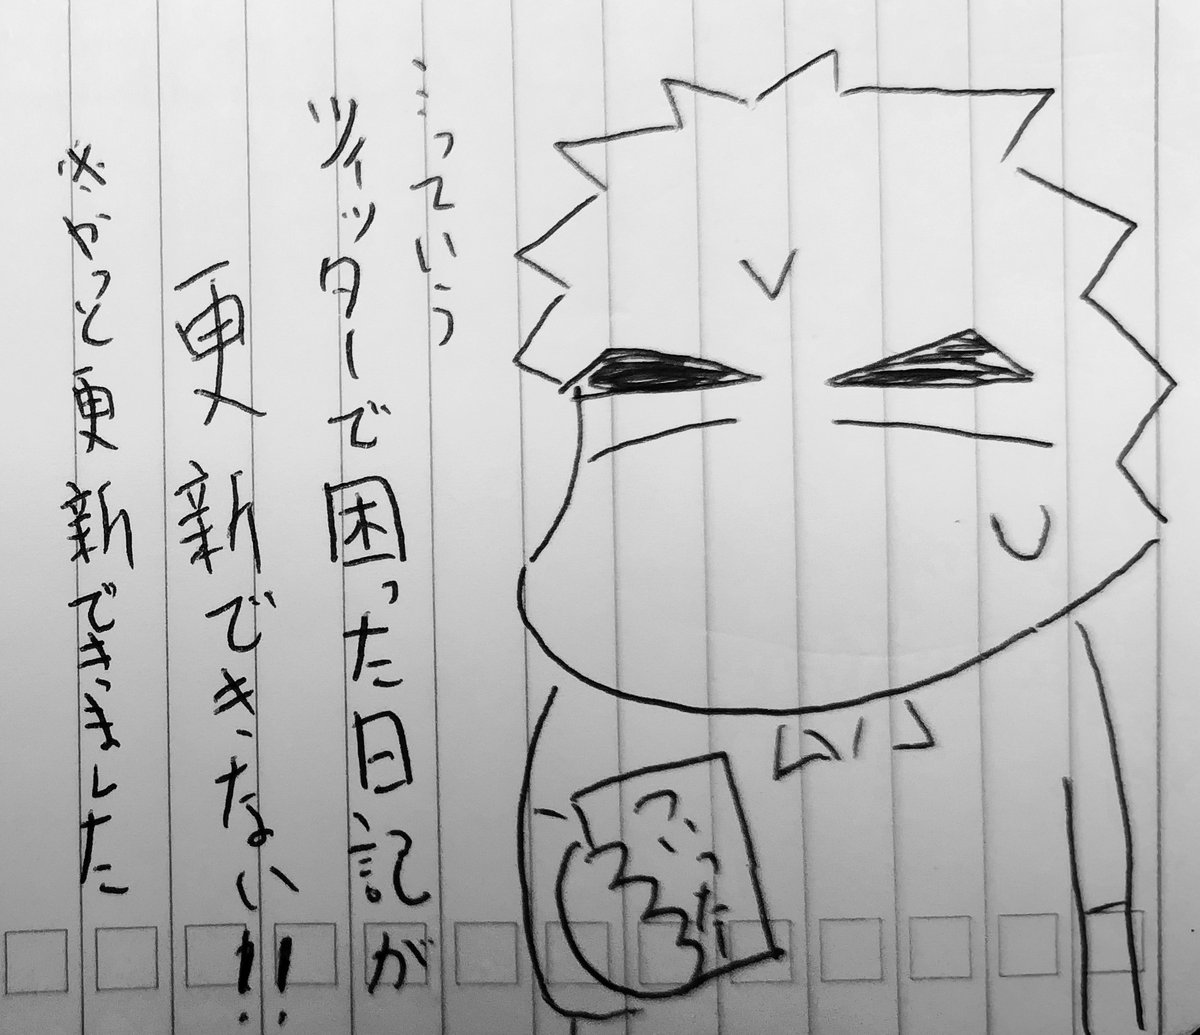 ついった
…っていう
ツイッターで困った日記が
更新できない!!
※やっと更新できました